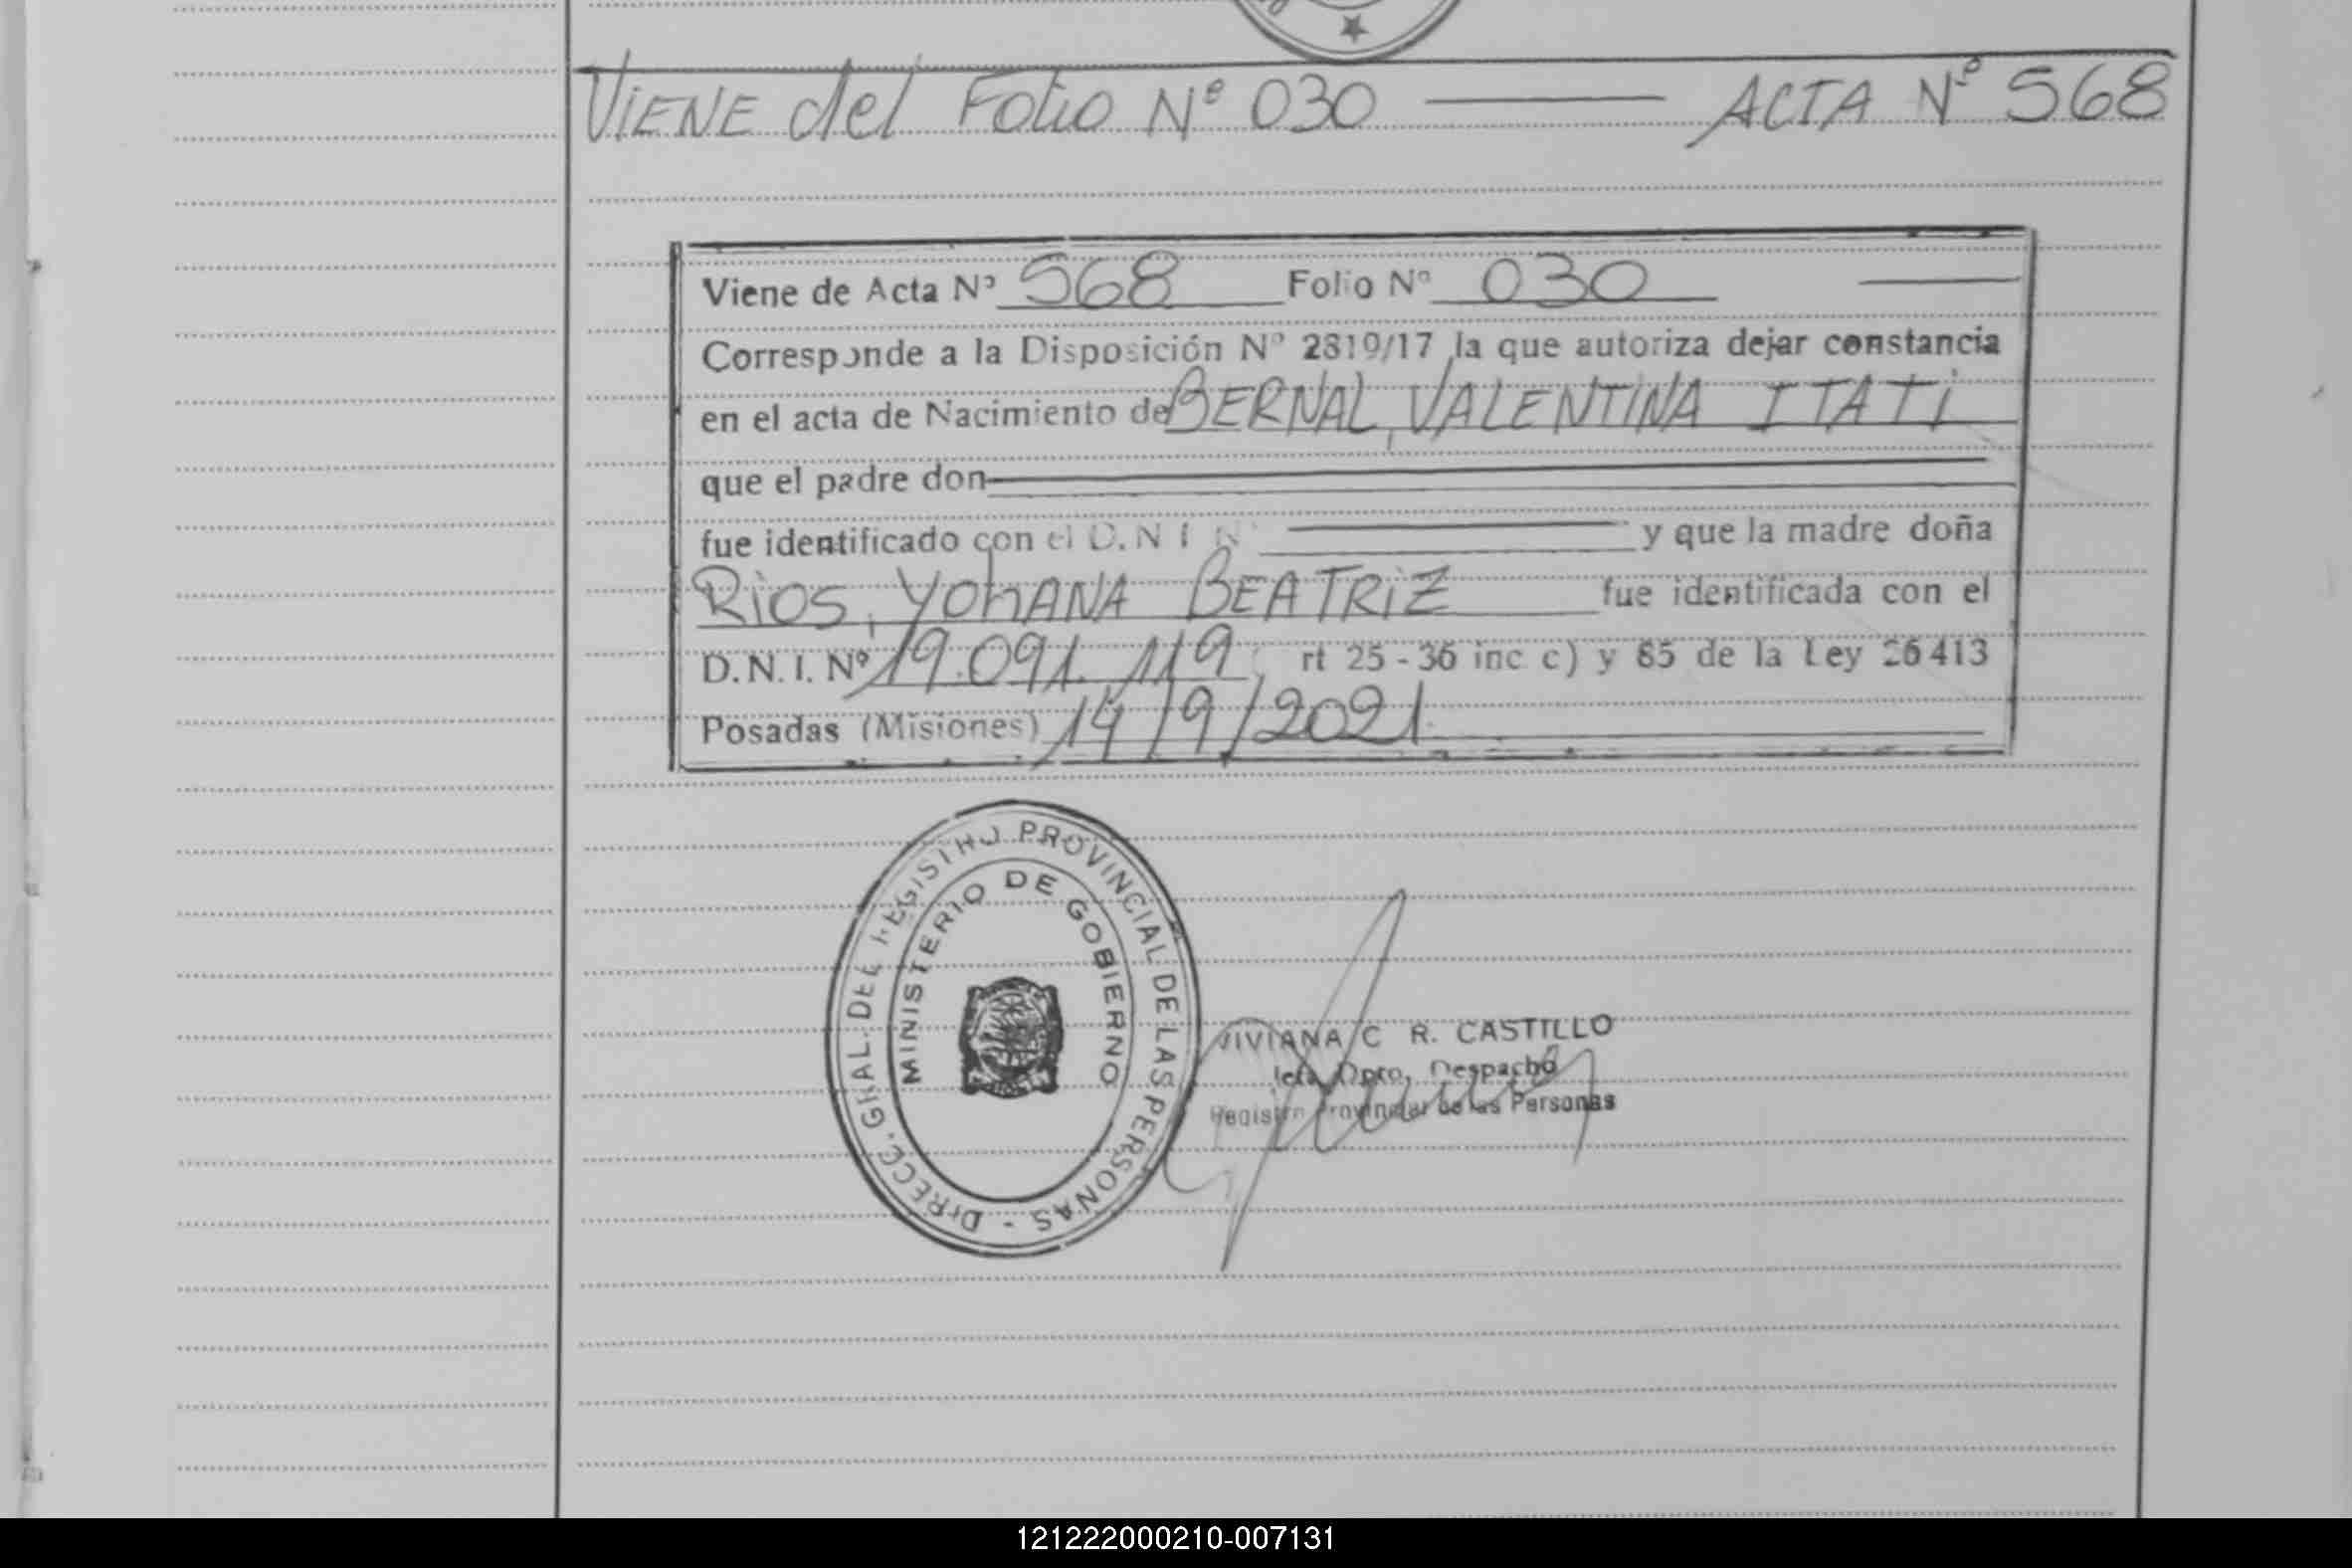 ViENE del Folio Nº 030 ——— ACTA Nº 568
Viene de Acta Nº 568 Folio Nº 030
Corresponde a la Disposición Nº 2819/17 la que autoriza dejar constancia
en el acta de Nacimiento de BERNAL, VALENTINA ITATi
que el padre don
fue identificado con el D.N.I Nº y que la madre doña
Rios, YohANA BEATRiZ fue identificada con el
D.N.I. Nº 19.091.119 rt 25 - 36 inc c) y 85 de la Ley 26413
Posadas (Misiones) 14/9/2021
DIRECC. GRAL. DEL REGISTRO PROVINCIAL DE LAS PERSONAS -
MINISTERIO DE GOBIERNO
VIVIANA C R. CASTILLO
Jefa Dpto. Despacho
Registro Provincial de las Personas
121222000210-007131